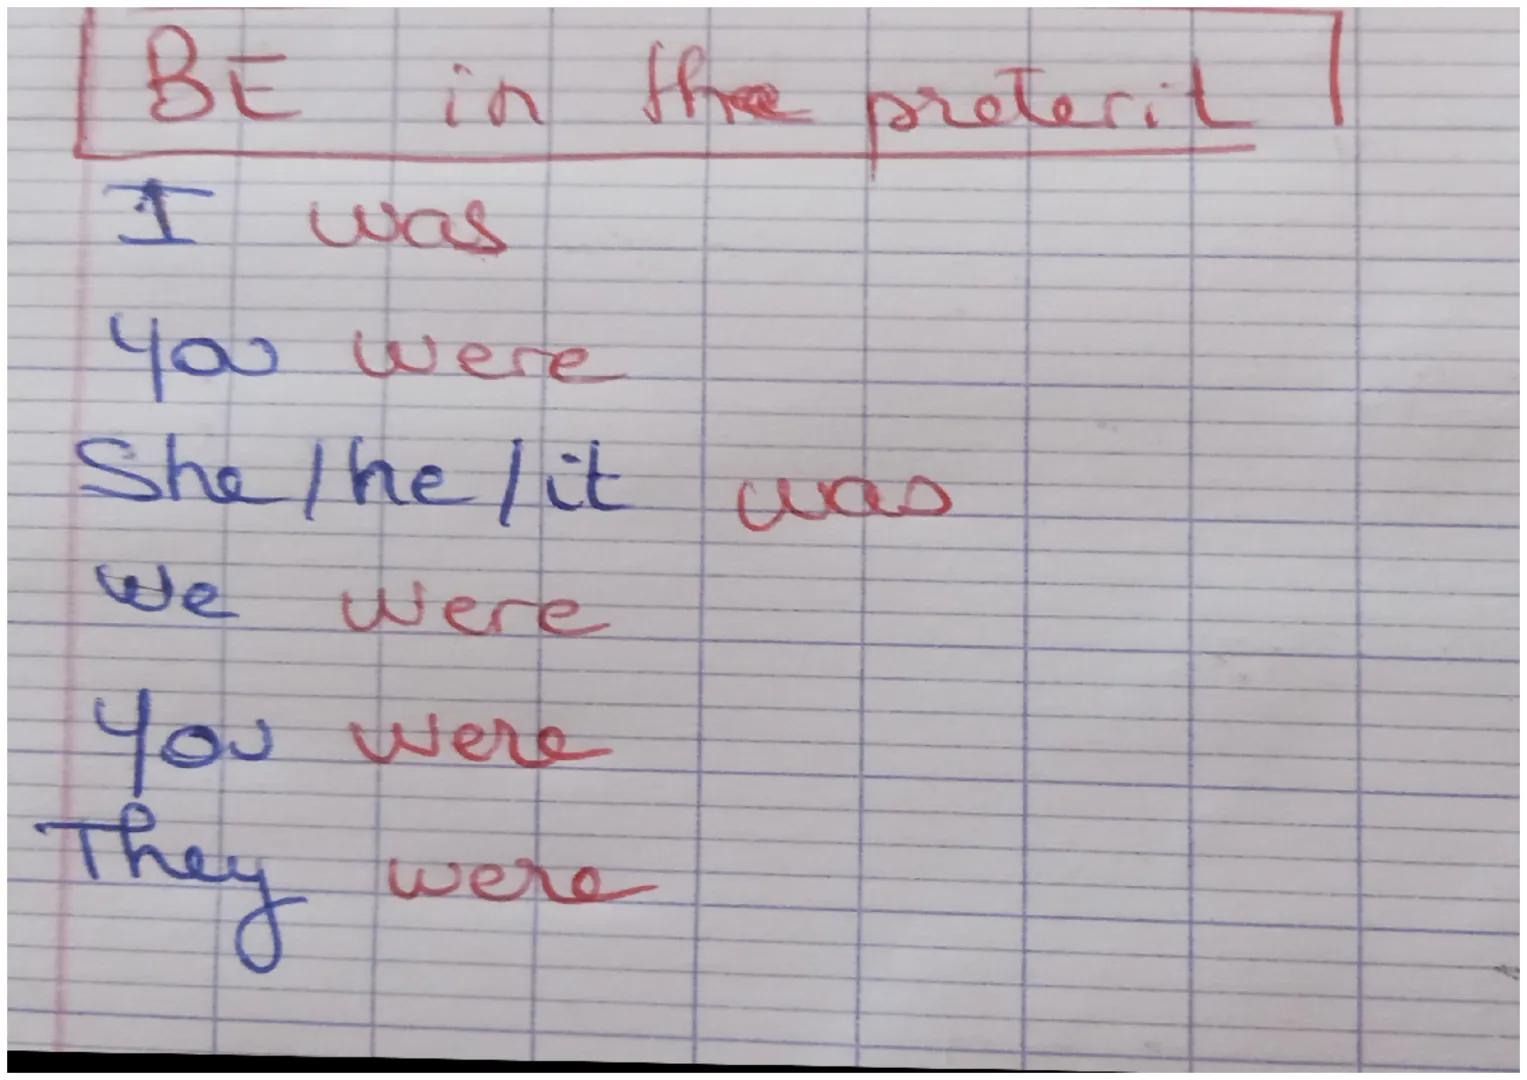 BE in the preterit
I was
You were
She/he/it was
We were
You were
They were